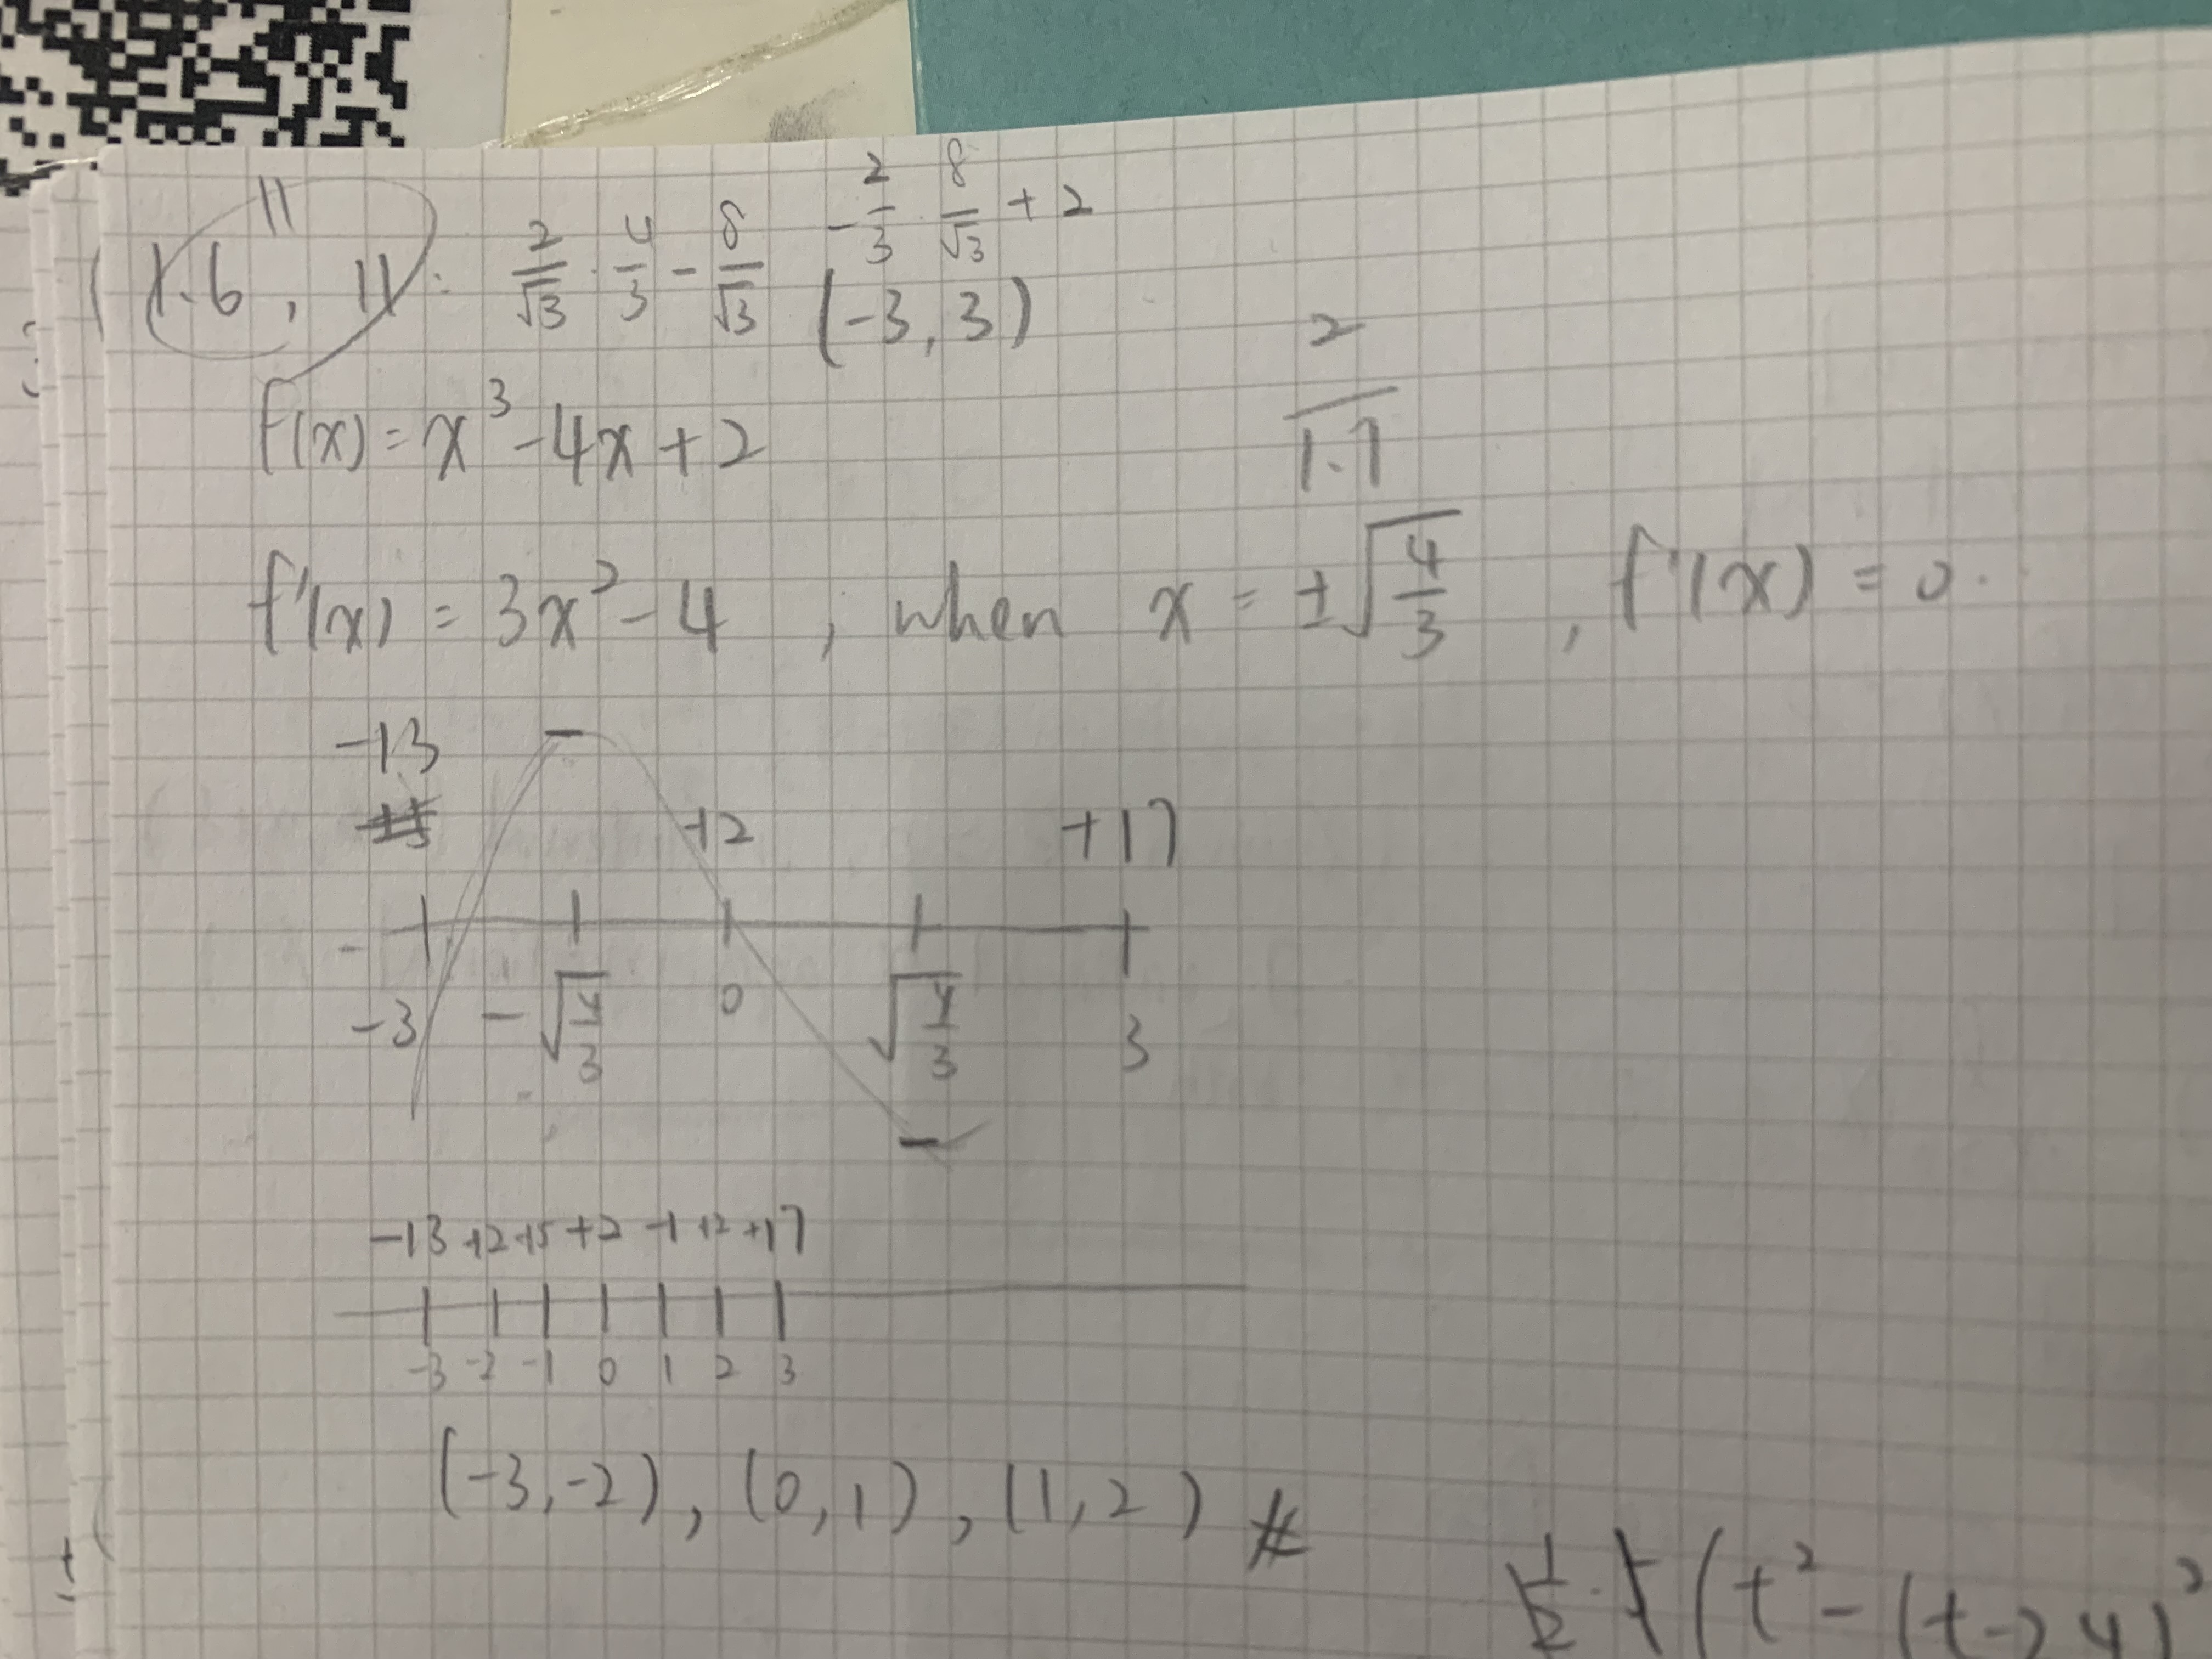 11
1.6, 11: 2/√3 · 4/3 - 8/√3
-2/3 8/√3 + 2
(-3, 3)
2/1.7
f(x) = x³ - 4x + 2
f'(x) = 3x² - 4 , when x = ±√(4/3) , f'(x) = 0.
-13
+2 +17
-3 -√(4/3) 0 √(4/3) 3
-13 +2 +5 +2 -1 +2 +17
-3 -2 -1 0 1 2 3
(-3, -2), (0, 1), (1, 2)